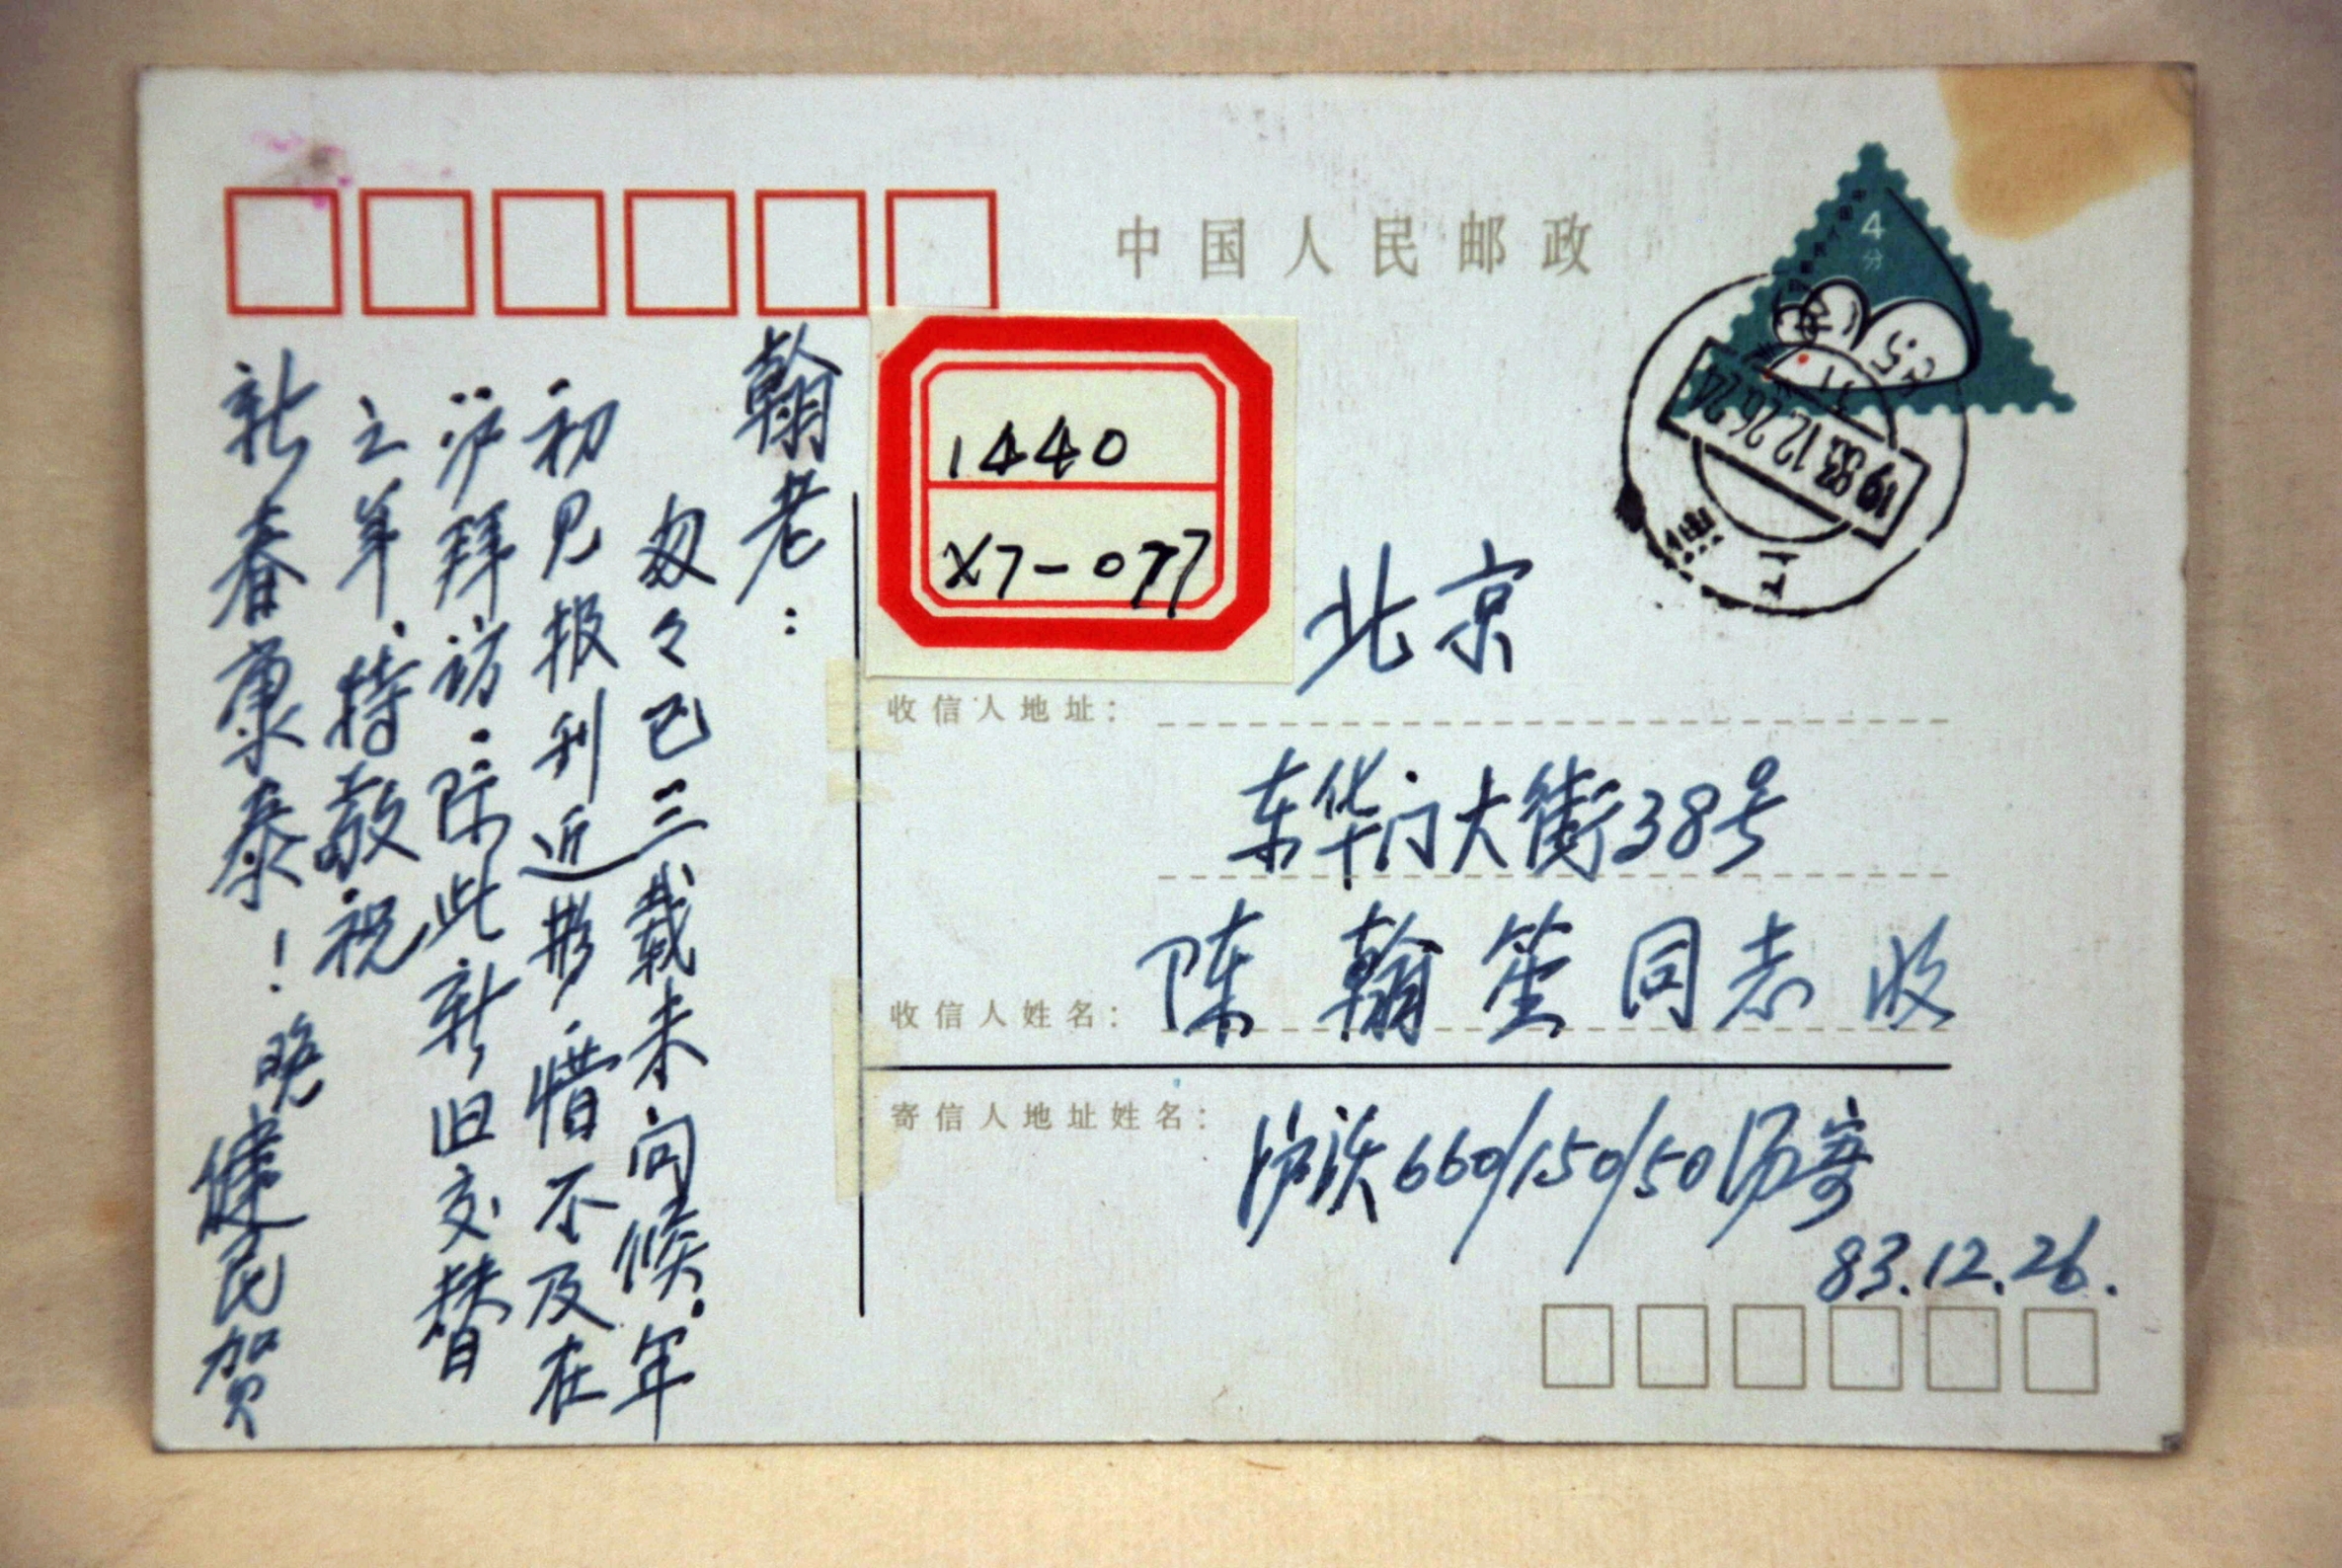 中国人民邮政
4
分
1983.12.26.24
上
1440
X7-077
收信人地址：
北京
东华门大街38号
收信人姓名：
陈翰笙同志收
寄信人地址姓名：
沪 660/150/50 寄
83.12.26.
翰老：
匆々已三载未问候。年
初见报刊近影，惜不及在
沪拜访。际此新旧交替
之年，特敬祝
新春康泰！晚健民贺